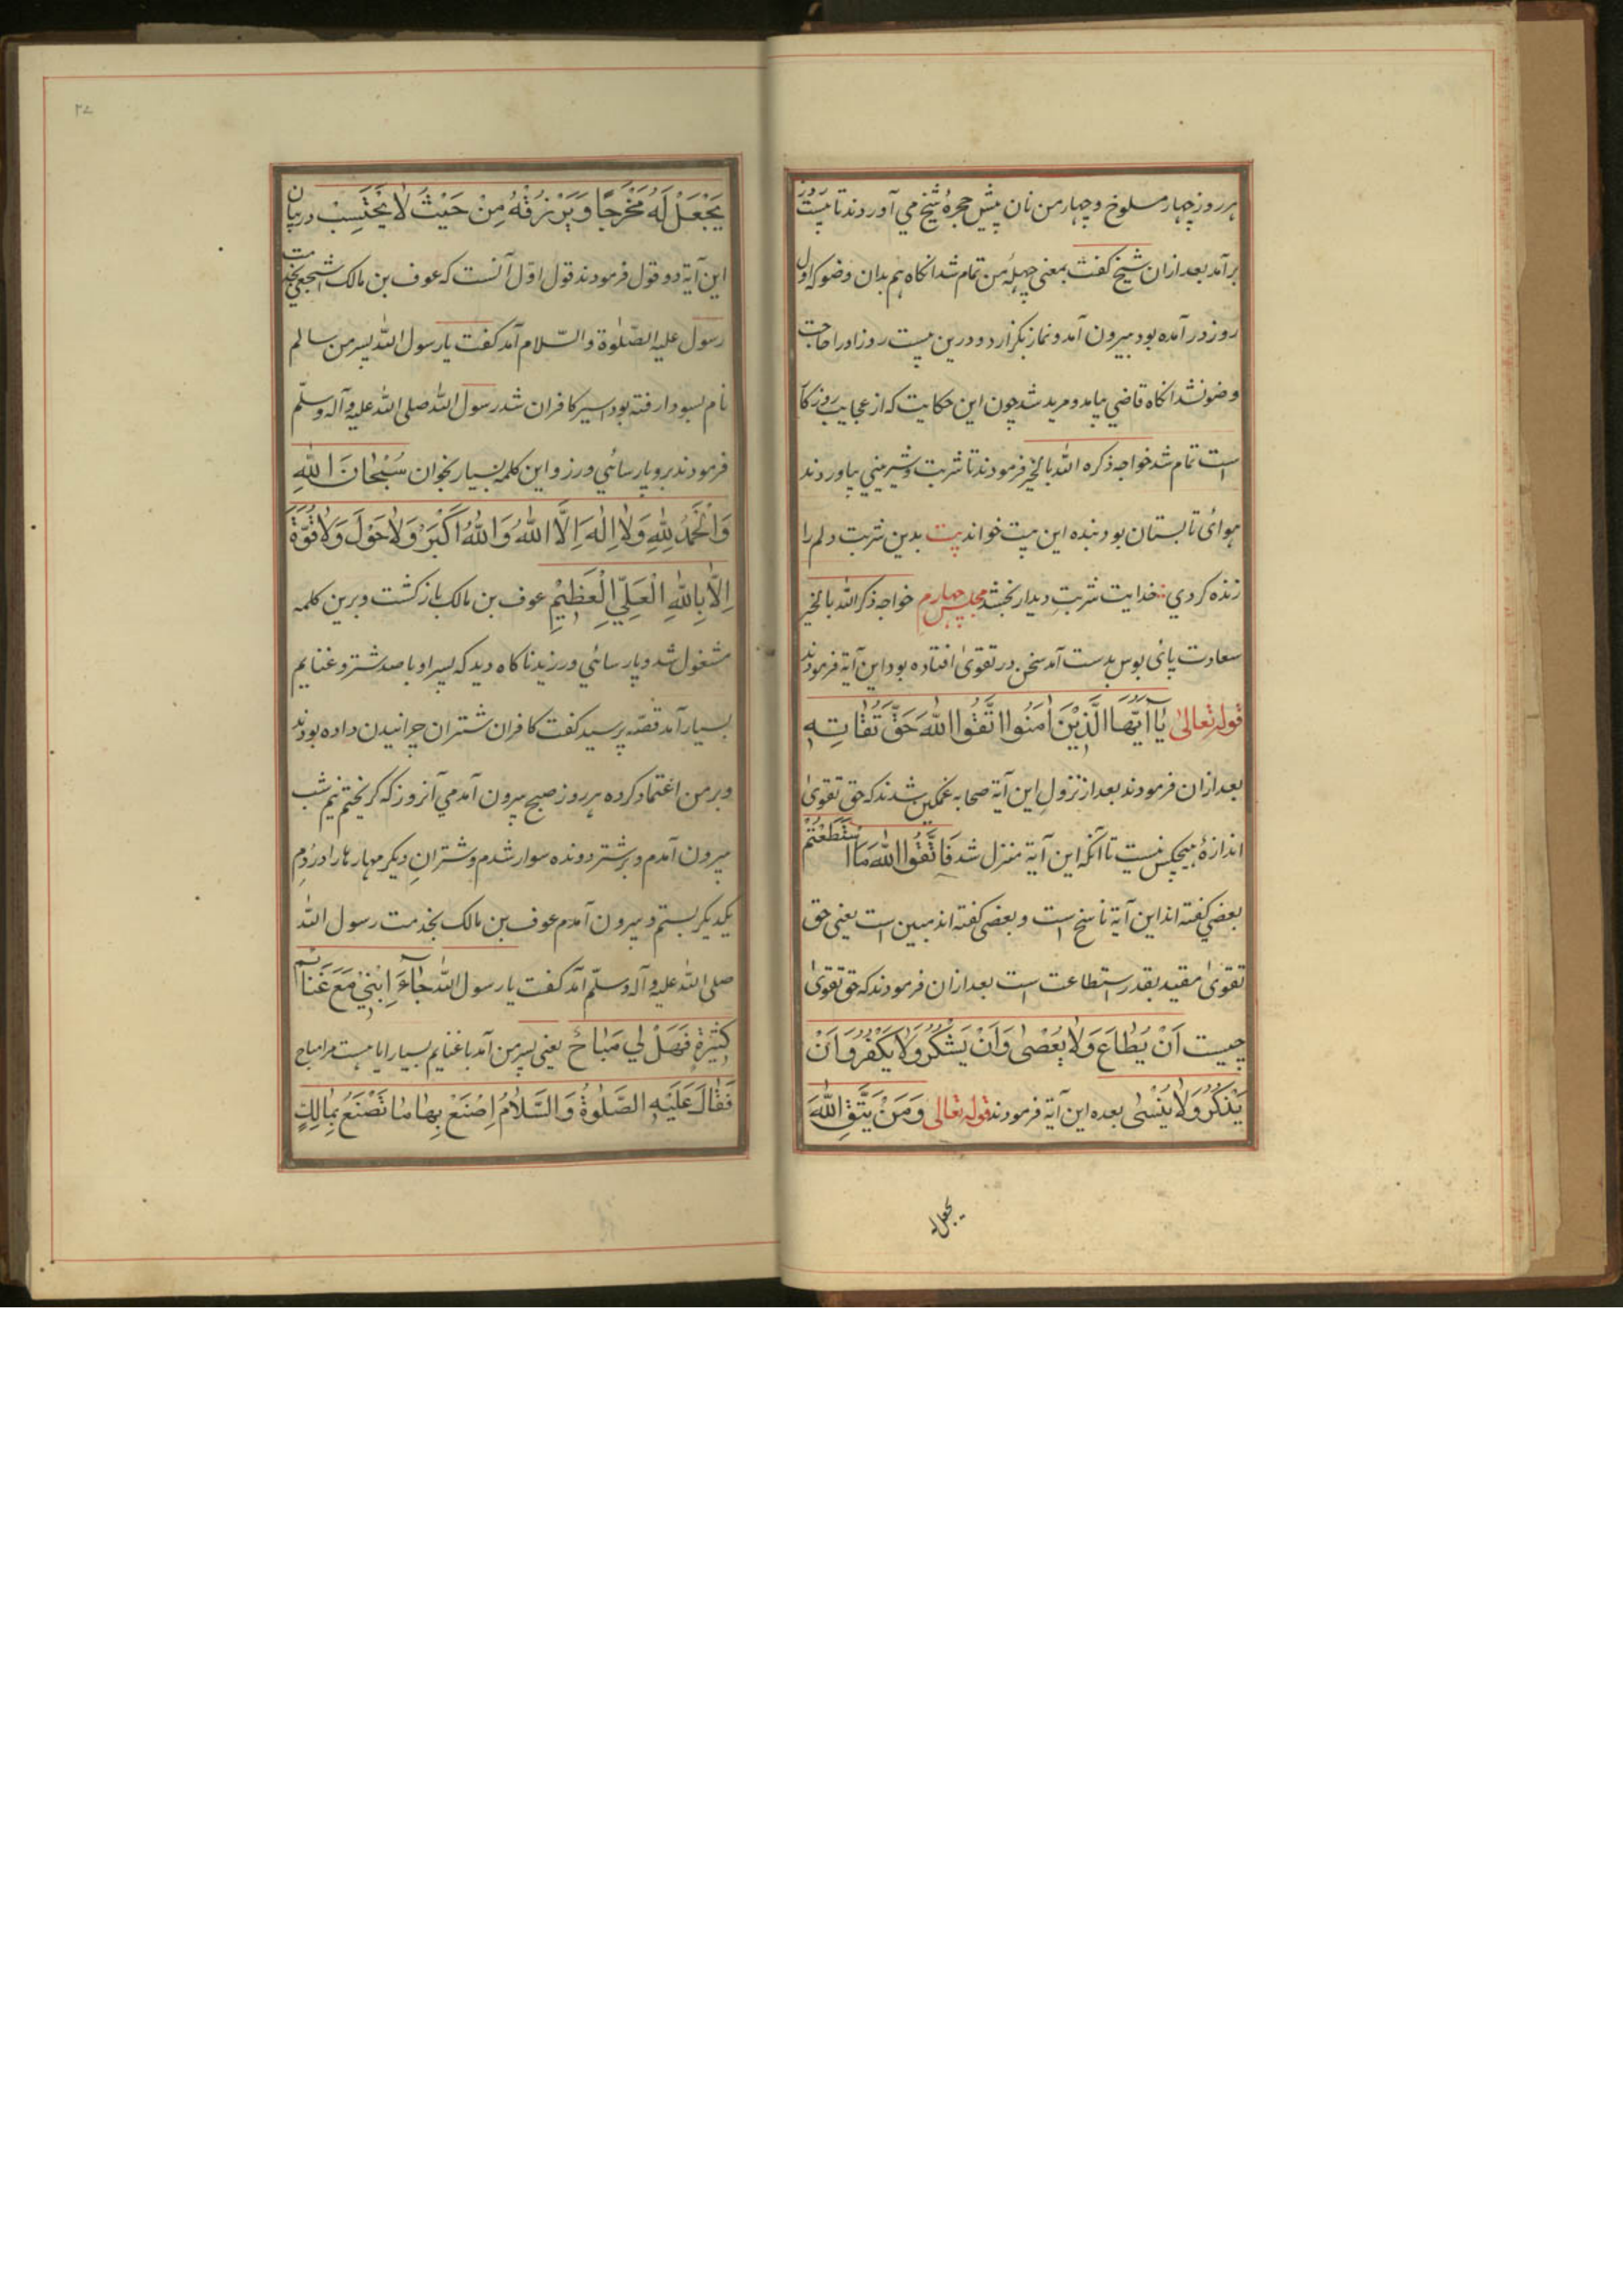 هر روز چهار مسلوخ و چهار من نان پیش حجرهٔ شیخ می آوردند تا بیست روز
برآمد بعد ازان شیخ گفت بمعنی چهلهٔ من تمام شد انگاه هم بدان وضو که اول
روز در آمده بود بیرون آمد و نماز بگزارد و درین بیست روز او را حاجت
وضو نشد انگاه قاضی بیامد و مرید شد چون این حکایت که از عجایب روزکا
است تمام شد خواجه ذکره الله بالخیر فرمودند تا شربت و شیرینی بیاوردند
هوائ تابستان بود بنده این بیت خواند بیت بدین شربت دلم را
زنده کردی خدایت شربتِ دیدار بخشد مجلس چهارم خواجه ذکر الله بالخیر
سعادت پائ بوس بدست آمد سخن در تقویٰ افتاده بود این آیة فرمودند
قوله تعالیٰ یٰاۤ اَیُّهَا الَّذِیْنَ اٰمَنُوا اتَّقُوا اللّٰهَ حَقَّ تُقٰاتِهٖ
بعد ازان فرمودند بعد از نزولِ این آیة صحابه غمگین شدند که حق تقویٰ
اندازهٔ هیچکس نیست تا آنکه این آیة منزل شد فَاتَّقُوا اللّٰهَ مَا اسْتَطَعْتُمْ
بعضی گفته اند این آیة ناسخ است و بعضی گفته اند مبین است یعنی حق
تقویٰ مقید بقدر استطاعت است بعد ازان فرمودند که حق تقویٰ
چیست اَنْ یُطٰاعَ وَلاٰ یُعْصٰی وَاَنْ یَشْکُرُ وَلاٰ یَکْفُرُ وَاَنْ
یَذْکُرُ وَلاٰ یَنْسٰی بعده این آیة فرمودند قوله تعالی وَمَنْ یَتَّقِ اللّٰهَ
یجعل له
۲۷
یَجْعَلْ لَهُ مَخْرَجًا وَیَرْزُقْهُ مِنْ حَیْثُ لاٰ یَحْتَسِبْ در بیان
این آیة دو قول فرمودند قول اوّل آنست که عوف بن مالک اشجعی بخدمت
رسول علیه الصّلوٰة والسّلام آمد گفت یا رسول اللّٰه پسر من سالم
نام بسودا رفته بود اسیر کافران شد رسول اللّٰه صلی اللّٰه علیه وآله وسلّم
فرمودند برو پارسائی ورز و این کلمه بسیار بخوان سُبْحٰانَ اللّٰهِ
وَالْحَمْدُ لِلّٰهِ وَلاٰ اِلٰهَ اِلَّا اللّٰهُ وَاللّٰهُ اَکْبَرُ وَلاٰ حَوْلَ وَلاٰ قُوَّةَ
اِلاّٰ بِاللّٰهِ الْعَلِیِّ الْعَظِیْمِ عوف بن مالک بازگشت و برین کلمه
مشغول شد و پارسائی ورزید ناکاه دید که پسر او با صد شتر و غنایم
بسیار آمد قصّه پرسید گفت کافران شتران چرانیدن داده بودند
و بر من اعتماد کرده هر روز صبح بیرون آمدمی آنروز که گریختم نیم شب
بیرون آمدم و بر شتر دونده سوار شدم و شترانِ دیگر مهارها را در دُم
یکدیگر بستم و بیرون آمدم عوف بن مالک بخدمت رسول اللّٰه
صلی اللّٰه علیه وآله وسلّم آمد گفت یا رسول اللّٰه جٰآءَ اِبْنِیْ مَعَ غَنَائم
کَثِیْرَةٍ فَهَلْ لِی مَبٰاحٌ یعنی پسر من آمد با غنایم بسیار ایا هست مرا مباح
فَقٰالَ عَلَیْهِ الصَّلٰوةُ وَالسَّلاٰمُ اِصْنَعْ بِهٰا مٰا تَصْنَعُ بِمٰالِكَ